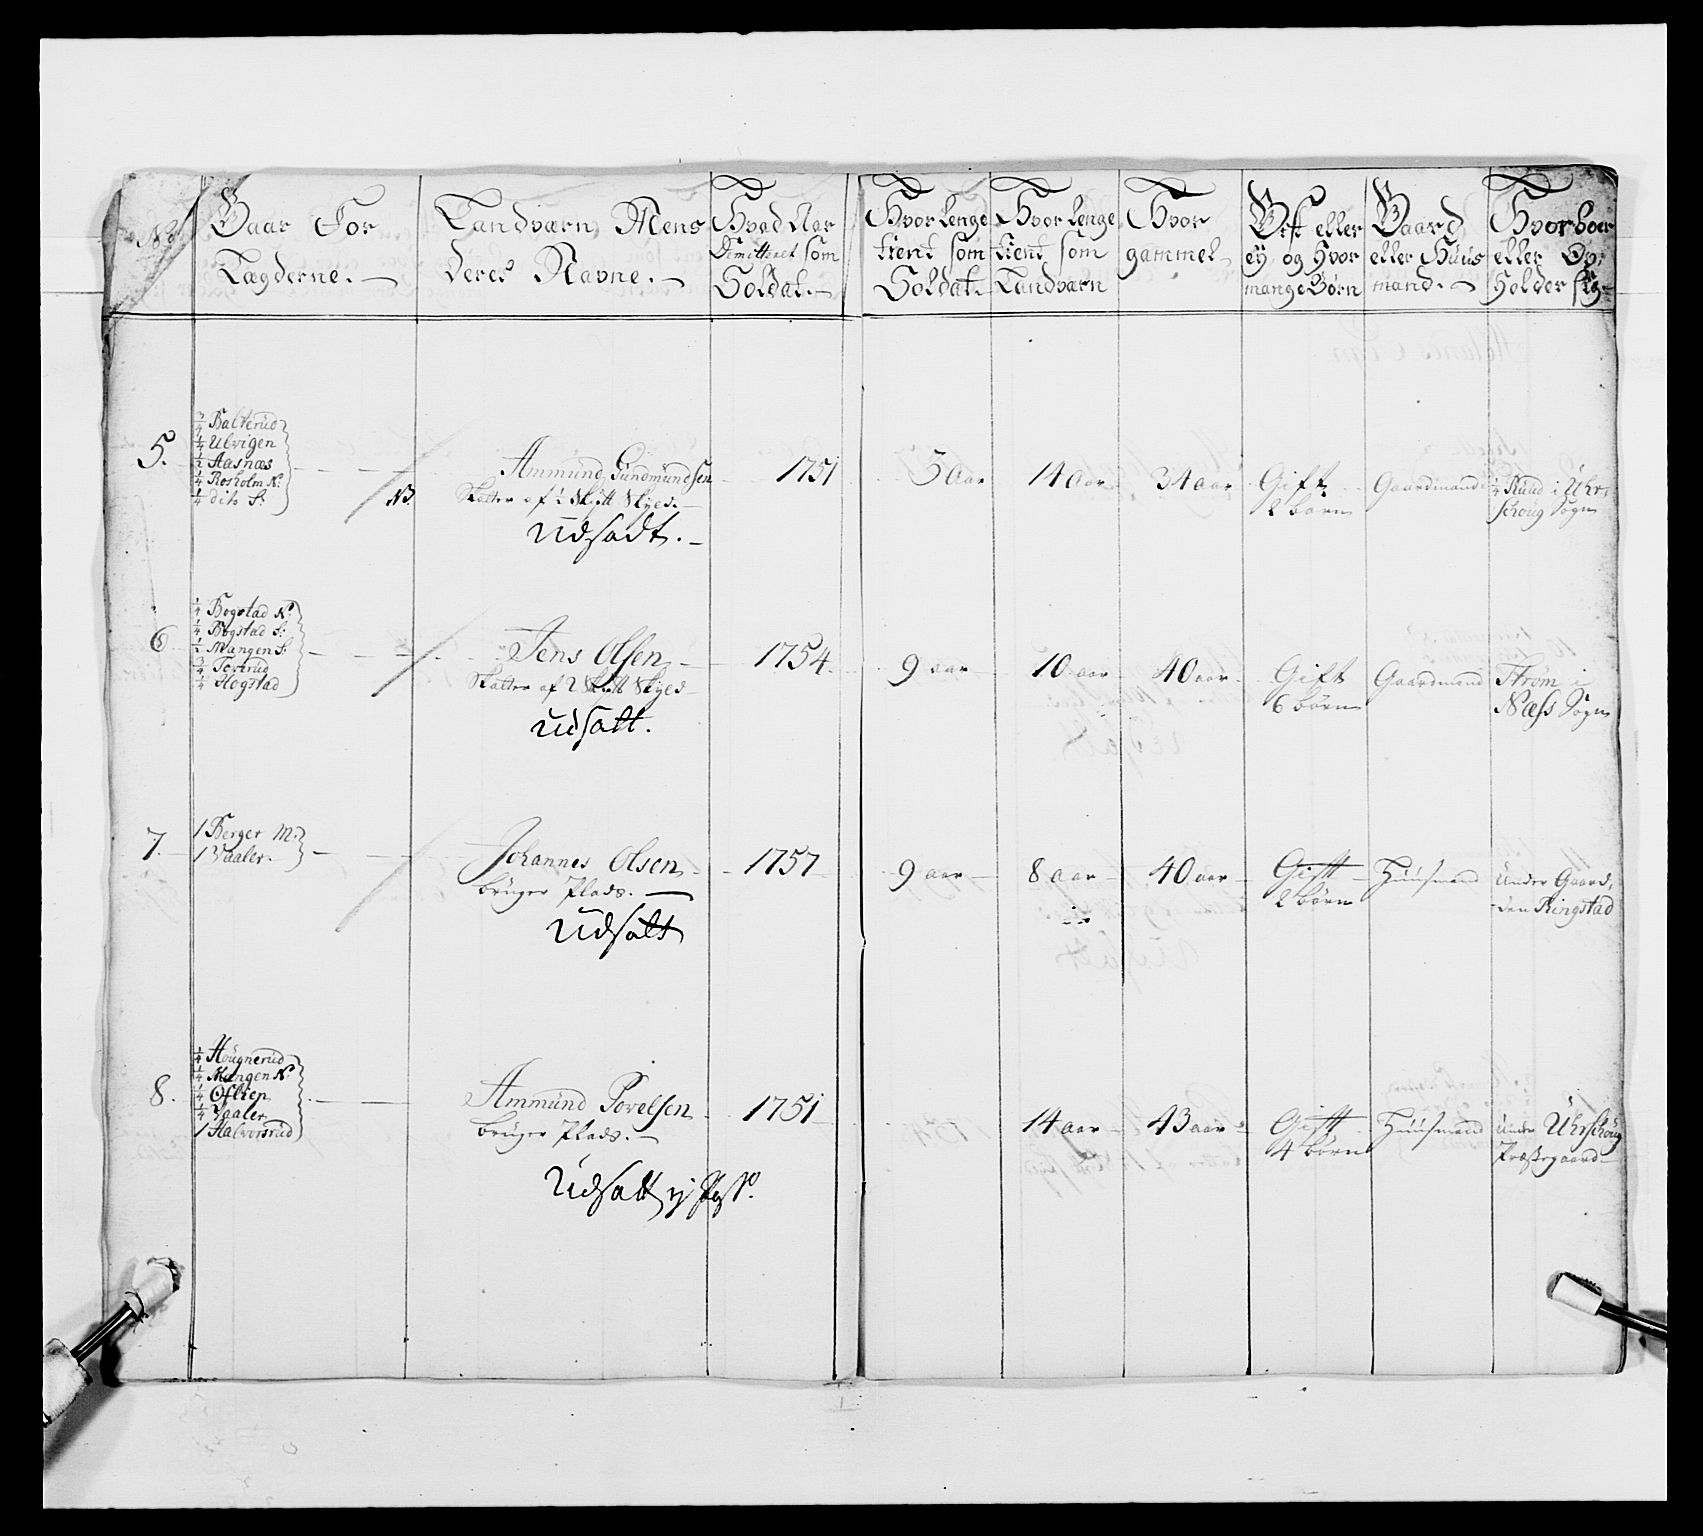 No
Gaar For
Lægderne.
Landværn Mens
deres Navne.
Hvad Aar
Dimitteret som
Soldat.
Hvor lenge
tient som
Soldat.
Hvor lenge
tient som
Landværn
Hvor
gammel
Gift eller
ey og Hvor
mange Børn
Gaard
eller Huus
mand.
Hvor boer
eller Op:
Holder sig
5.
3/4 Balterud
1/4 Ulvigen
1/2 Aasnæs
1/4 Rosholm N:
1/4 dito S:
NB.
Ammund Gundmundsen
Skatter af 1/2 Skytt Skyed.
Udsadt.
1751
3 Aar
14 Aar
34 aar
Gift
2 børn
Gaardmand
1/4 Ruud i Uhr-
schoug Sogn
6
1/4 Bogstad N:
1/4 Bogstad S:
1/2 Mangen S:
3/4 Toverud
1/4 Hogstad
Jens Olsen
Skatter af 2 Skytt Skyed
Udsatt.
1754.
9 aar
10 aar
40 aar
Gift
6 børn
Gaardmand
Strøm i
Næss Sogn
7.
1 Berger M:
1 Vaaler
Johannes Olsen
bruger Plads.
Udsatt
1757
9 aar
8 aar
40 aar
Gift
2 børn
Huusmand
Under Gaar-
den Ringstad
8.
1/4 Hougnerud
1/4 Mangen N:
1/4 Oflien
1/4 Vaaler
1 Halvorsrud
Ammund Povelsen
bruger Plads.
Udsatt
1751
14 aar
43 aar
Gift
4 børn
Huusmand
under Uhrschoug
Præstegaard